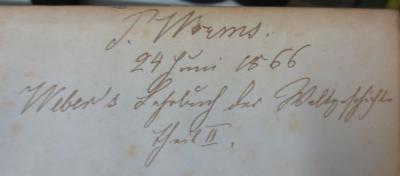 T. Worms.
24 Juni 1866
Weber's Lehrbuch der Weltgeschichte
Theil II.